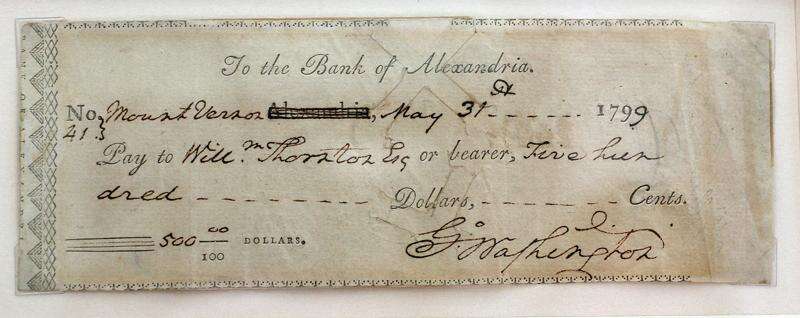 To the Bank of Alexandria.
No. Mount Vernon Alexandria, May 31st 1799
41
Pay to Will.m Thornton Esq or bearer, Five hun
dred Dollars, Cents.
500 00/100 DOLLARS.
G:Washington